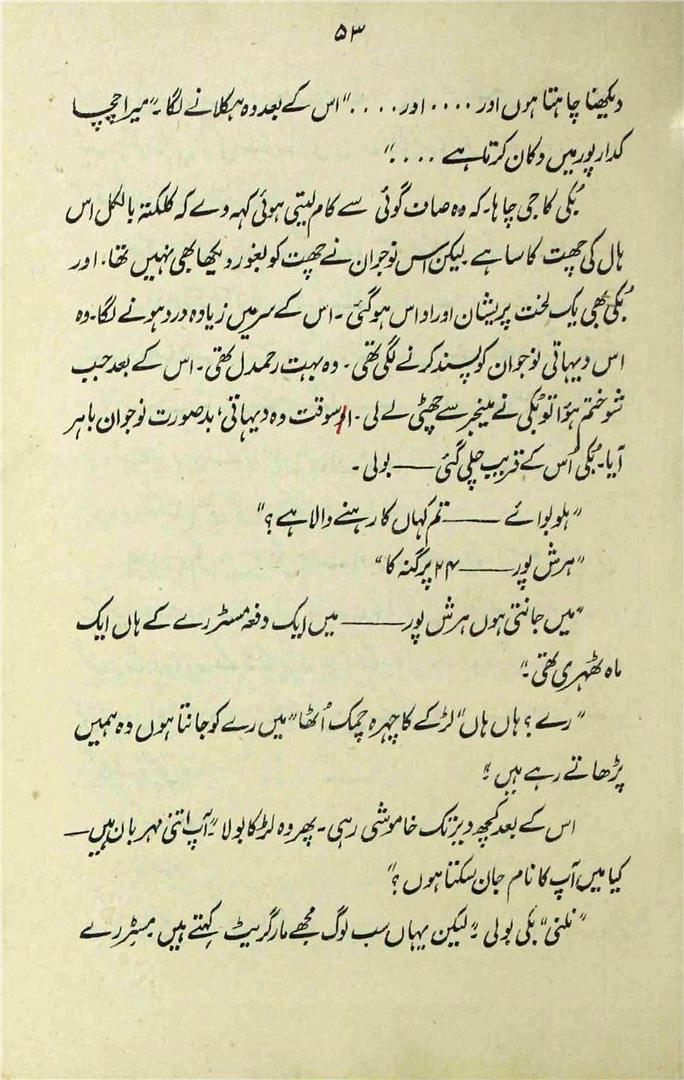 ۵۳
دیکھنا چاہتا ہوں اور .... اور ...." اس کے بعد وہ ہکلانے لگا۔ "میرا چچا
کدارپور میں دکان کرتا ہے ...."
بُکی کا جی چاہا۔ کہ وہ صاف گوئی سے کام لیتی ہوئی کہہ دے کہ کلکتہ بالکل اس
ہال کی چھت کا سا ہے لیکن اس نوجوان نے چھت کو بغور دیکھا بھی نہیں تھا۔ اور
بُکی بھی یک لخت پریشان اور اداس ہو گئی۔ اس کے سر میں زیادہ درد ہونے لگا۔ وہ
اس دیہاتی نوجوان کو پسند کرنے لگی تھی۔ وہ بہت رحمدل تھی۔ اس کے بعد جب
شو ختم ہؤا تو بُکی نے مینجر سے چھٹی لے لی۔ اسوقت وہ دیہاتی، بدصورت نوجوان باہر
آیا۔ بُکی اُس کے قریب چلی گئی —— بولی۔
"ہلو بوائے —— تم کہاں کا رہنے والا ہے؟"
"ہرش پور —— ۲۴ پرگنہ کا"
"میں جانتی ہوں ہرش پور —— میں ایک دفعہ مسٹر رے کے ہاں ایک
ماہ ٹھہری تھی۔"
"رے؟ ہاں ہاں" لڑکے کا چہرہ چمک اُٹھا "میں رے کو جانتا ہوں وہ ہمیں
پڑھاتے رہے ہیں۔"
اس کے بعد کچھ دیر تک خاموشی رہی۔ پھر وہ لڑکا بولا۔ "آپ اتنی مہربان ہیں —
کیا میں آپ کا نام جان سکتا ہوں؟"
"نلنی" بُکی بولی۔ "لیکن یہاں سب لوگ مجھے مارگریٹ کہتے ہیں۔ مسٹر رے